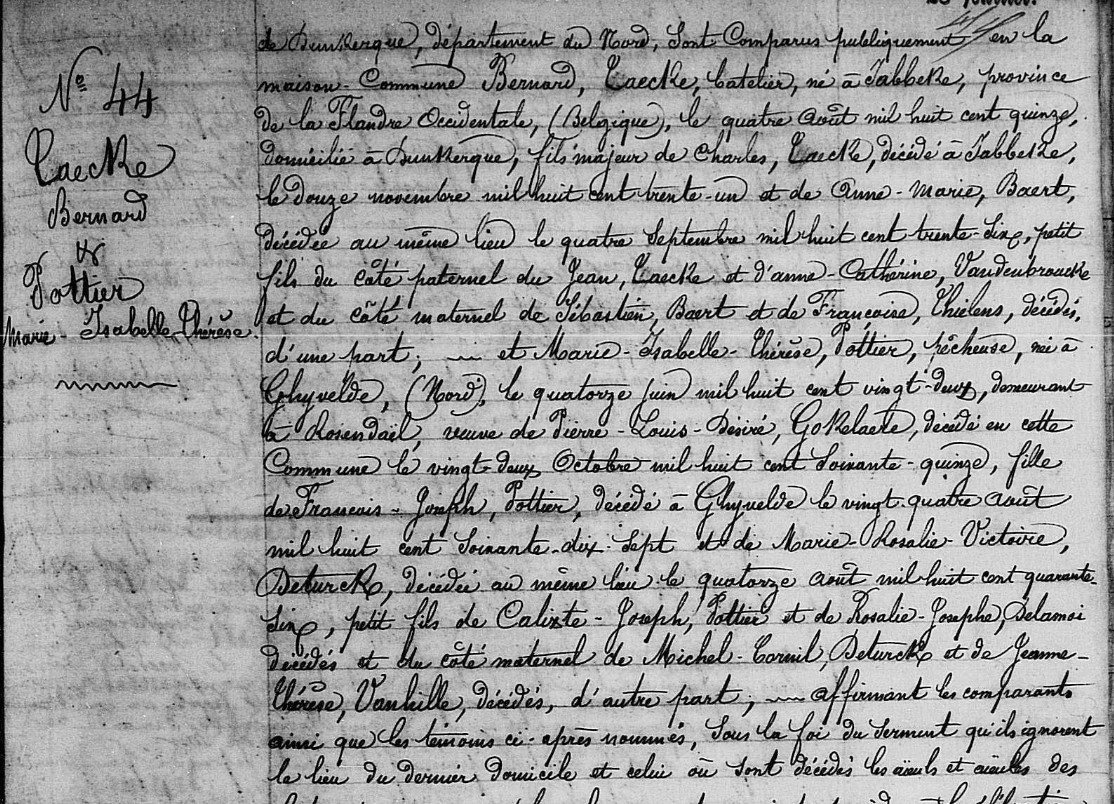 N° 44
Taecke
Bernard
&
Pottier
Marie-Isabelle-Thérèse.
de Dunkerque, département du Nord, sont Comparus publiquement en la
maison-Commune Bernard, Taecke, batelier, né à Jabbeke, province
de la Flandre Occidentale, (Belgique), le quatre août mil huit cent quinze,
domicilié à Dunkerque, fils majeur de Charles, Taecke, décédé à Jabbeke,
le douze novembre mil huit cent trente-un et de Anne-Marie, Baert,
décédée au même lieu le quatre Septembre mil huit cent trente-six, petit
fils du côté paternel du Jean, Taecke et d'anne-Cathérine, Vandenbroucke
et du côté maternel de Sébastien, Baert et de Françoise, Thielens, décédés,
d'une part; et Marie-Isabelle-Thérèse, Pottier, pêcheuse, née à
Ghyvelde, (Nord), le quatorze juin mil huit cent vingt-deux, demeurant
à Rosendaël, veuve de Pierre-Louis-Désiré, Gokelaere, décédé en cette
Commune le vingt-deux Octobre mil huit cent soixante-quinze, fille
de Francois-Joseph, Pottier, décédé à Ghyvelde le vingt-quatre août
mil huit cent soixante-dix-sept et de Marie-Rosalie-Victoire,
Deturck, décédée au même lieu le quatorze août mil huit cent quarante-
six, petit fils de Calixte-Joseph, Pottier et de Rosalie-Josephe, Delamoi
décédés et du côté maternel de Michel-Cornil, Deturck et de Jeanne-
Thérèse, Vanhille, décédés, d'autre part; affirmant les comparants
ainsi que les témoins ci-après nommés, sous la foi du serment qu'ils ignorent
le lieu du dernier domicile et celui où sont décédés les aïeuls et aïeules des